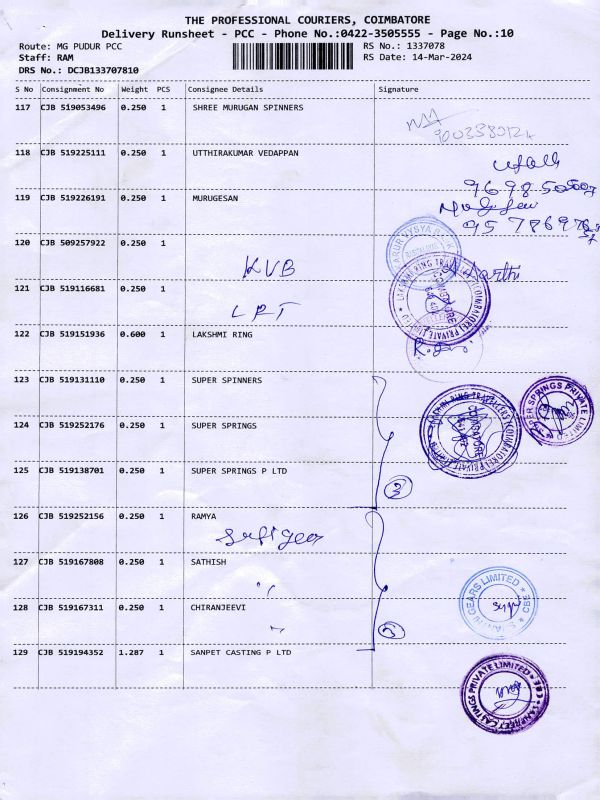 THE PROFESSIONAL COURIERS, COIMBATORE
Delivery Runsheet - PCC - Phone No.:0422-3505555 - Page No.:10
Route: MG PUDUR PCC
RS No.: 1337078
Staff: RAM
RS Date: 14-Mar-2024
DRS No.: DCJB133707810
S No Consignment No Weight PCS Consignee Details Signature
117 CJB 519053496 0.250 1 SHREE MURUGAN SPINNERS
118 CJB 519225111 0.250 1 UTTHIRAKUMAR VEDAPPAN
119 CJB 519226191 0.250 1 MURUGESAN
120 CJB 509257922 0.250 1
KVB
121 CJB 519116681 0.250 1
LRT
122 CJB 519151936 0.600 1 LAKSHMI RING
123 CJB 519131110 0.250 1 SUPER SPINNERS
124 CJB 519252176 0.250 1 SUPER SPRINGS
125 CJB 519138701 0.250 1 SUPER SPRINGS P LTD
3
126 CJB 519252156 0.250 1 RAMYA
127 CJB 519167808 0.250 1 SATHISH
GEARS LIMITED
CBE
128 CJB 519167311 0.250 1 CHIRANJEEVI
129 CJB 519194352 1.287 1 SANPET CASTING P LTD
CASTINGS PRIVATE LIMITED